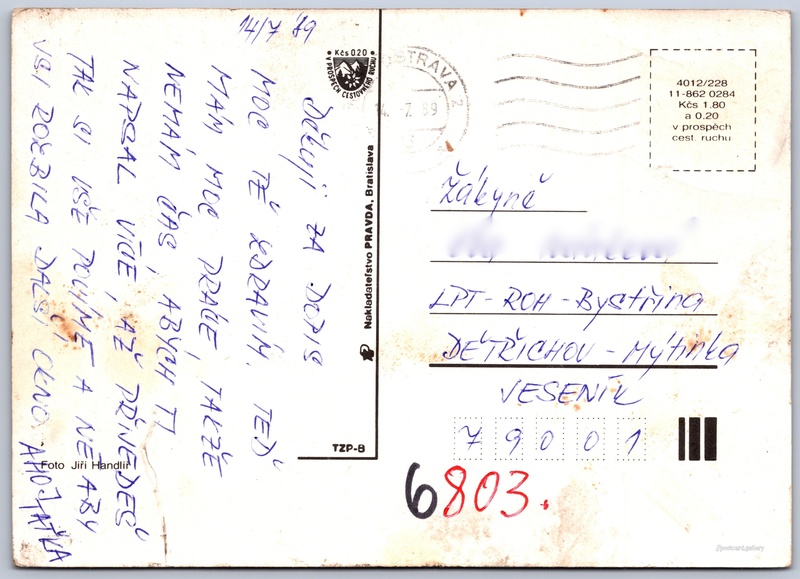 14/7 89
DĚKUJI ZA DOPIS
MOC TĚ ZDRAVÍM. TEĎ
MÁM MOC PRÁCE TAKŽE
NEMÁM ČAS, ABYCH TI
NAPSAL VÍCE, AŽ PŘIJEDEŠ
TAK SI VŠE POVÍME A NE ABY
VSI ROZBILA DALŠÍ OKNO. AHOJ
Foto Jiří Handlíř
Kčs 0.20
V PROSPĚCH CESTOVNÉHO RUCHU
Nakladateľstvo PRAVDA, Bratislava
TZP-B
OSTRAVA 2
7. 89
4012/228
11-862 0284
Kčs 1.80
a 0.20
v prospěch
cest. ruchu
Žákyně
LPT-ROH-Bystřina
DĚTŘICHOV-Mýtinka
VESENÍK
79001
6803.
postcard.gallery